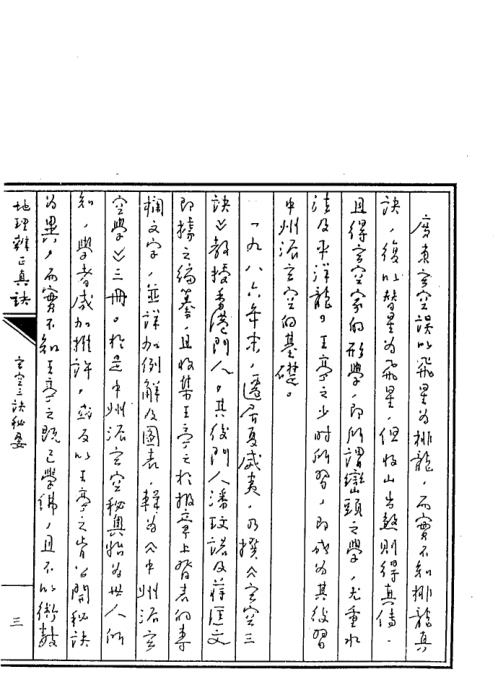 廣東玄空誤以飛星為排龍,而實不知排龍真
訣,復以替星為飛星,但收山出煞則得真傳,
且得玄空家的形學,即所謂巒頭之學,尤重水
法及平洋龍。王亭之少時所習,即成為其後習
中州派玄空的基礎。
一九八六年末,遷居夏威夷,乃撰《玄空三
訣》教授香港門人。其後門人潘玟諾及蔣匡文
即據之編纂,且收集王亭之於報章上發表的專
欄文字,並詳加例解及圖表,輯為《中州派玄
空學》三冊。於是中州派玄空秘奧始為世人所
知,學者咸加推許,或反以王亭之肯公開秘訣
為異,而實不知王亭之既已學佛,且不以術數
地理辨正真訣
玄空三訣秘要
三